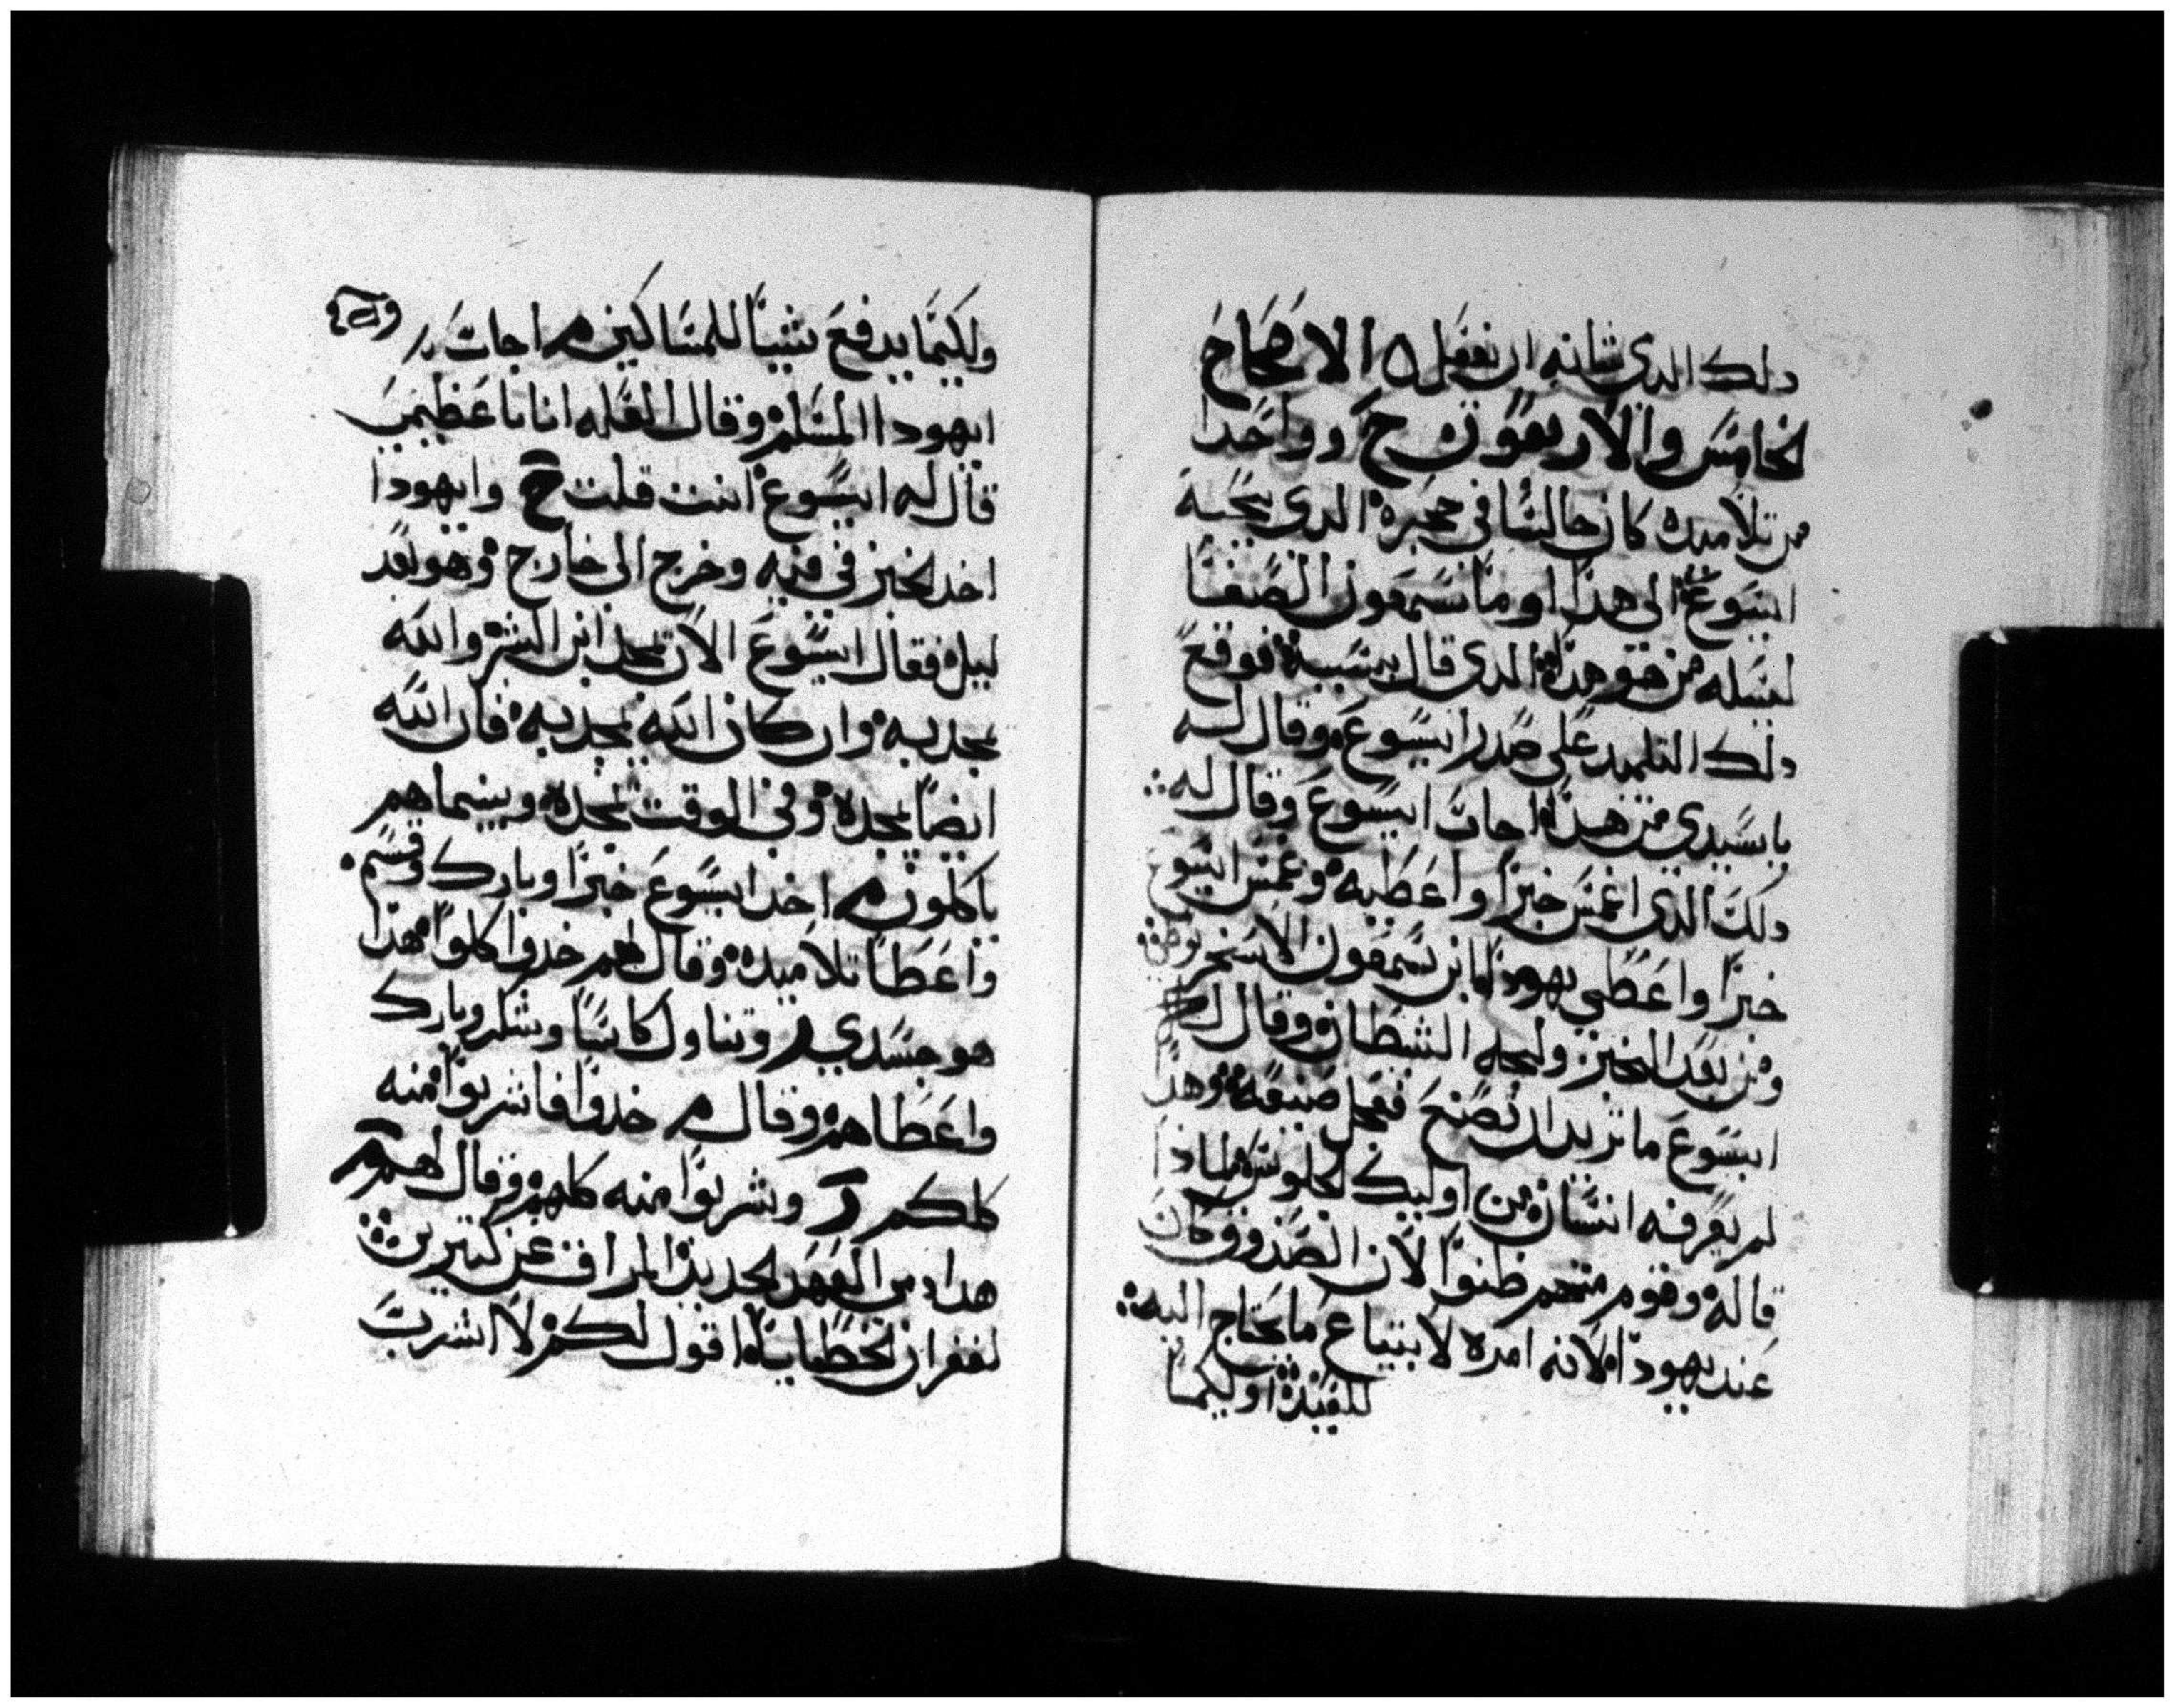 دلك الدى شانه ان يفعل ٥ الاصحاح
الخامس والاربعون ح وواحدا
من تلاميده كان جالسا في حجره الدى يحبه
ايسوع الى هذا اوما شمعون الصفا
ليسله من هو هذا الدى قال بسببه فوقع
دلك التلميد على صدر ايسوع وقال له
ياسيدي من هذا اجاب ايسوع وقال له
دلك الدى اغمس خبزا واعطيه وغمس ايسوع
خبزا واعطى يهودا ابن شمعون الاسخريوطى
ومن بعد الخبز ولجه الشيطان وقال له
ايسوع ما تريد ان تصنع فعجل صنيعه وهذا
لم يعرفه انسان من اوليك الجلوس لماذا
قاله وقوم منهم ظنوا لان الصندوق كان
عند يهودا لانه امره لابتياع ما يحتاج اليه
للعيد او ليكما
وليكما يدفع شيا للمساكين م اجاب ر
ايهودا المسلم وقال لعله انا يا عظيمى
قال له ايسوع انت قلت ح وايهودا
اخد الخبز في فيه وخرج الى خارج وهو بعد
ليل فقال ايسوع الان تمجد ابن البشر والله
تمجد به وان كان الله تمجد به فان الله
ايضا يمجده وفى الوقت يمجده وبينما هم
ياكلون م اخد ايسوع خبزا وبارك وقسم
واعطا تلاميده وقال لهم خدوا كلوا هذا
هو جسدي ر وتناول كاسا وشكر وبارك
واعطاهم وقال م خدوا فاشربوا منه
كلكم ر وشربوا منه كلهم وقال لهم م
هدا دمى العهد الجديد المراق عن كتيرين
لغفران الخطايا اقول لكم لا اشرب